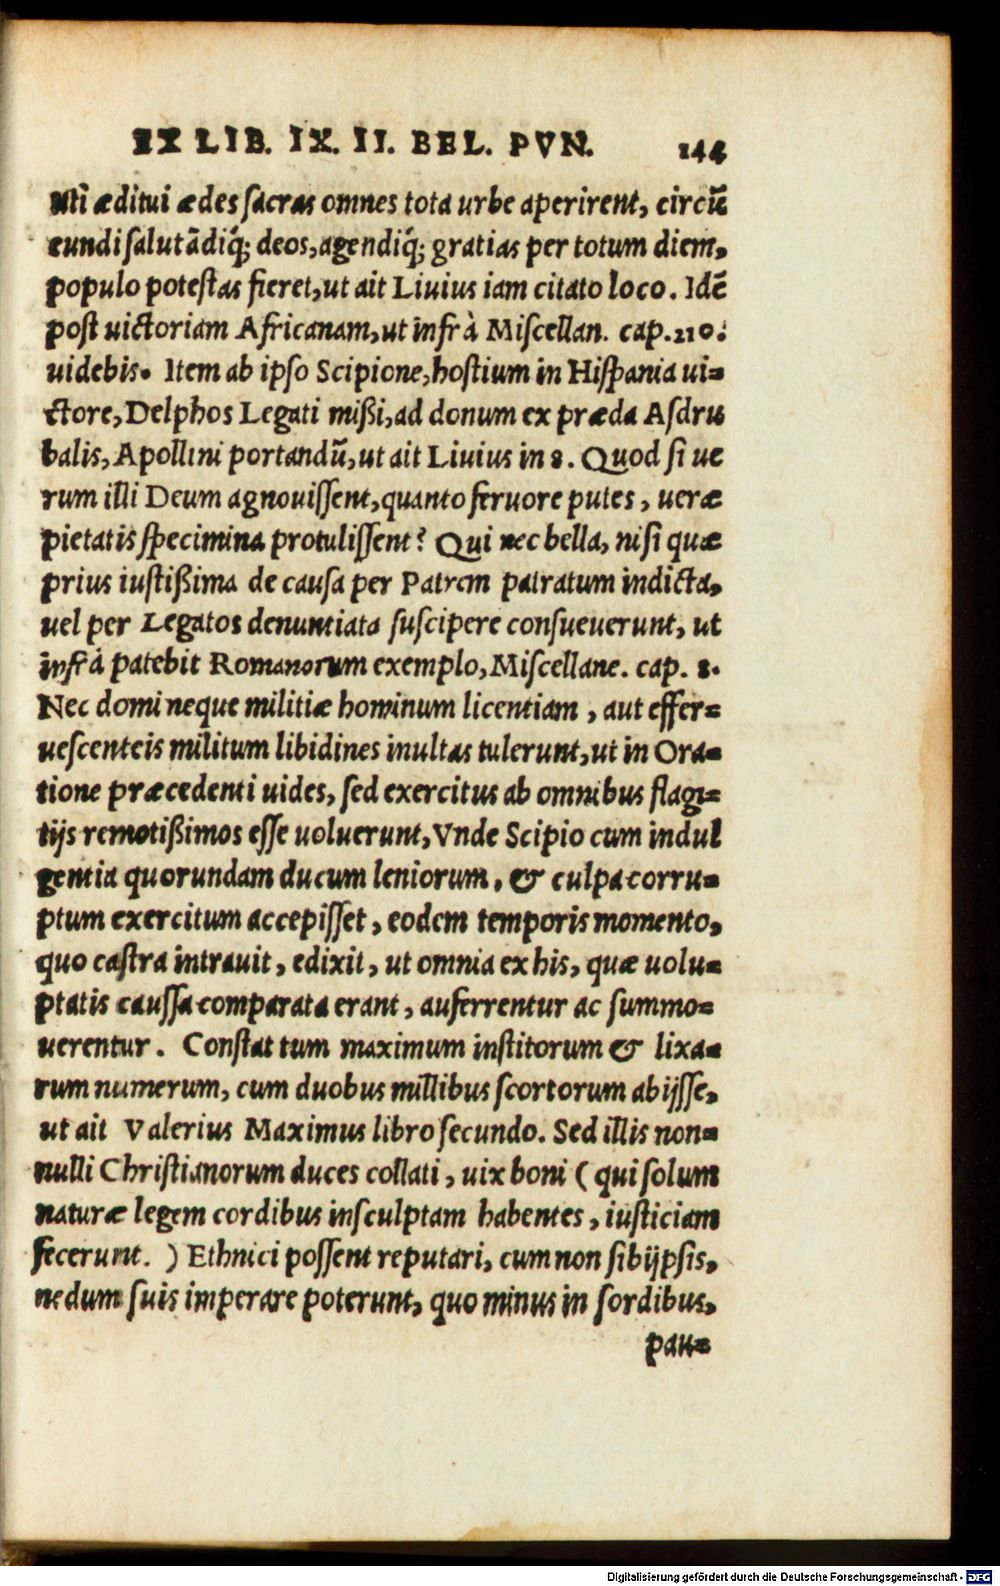 EX LIB. IX. II. BEL. PVN. 144
uti æditui ædes sacras omnes tota urbe aperirent, circũ
eundi salutãdiq́; deos, agendiq́; gratias per totum diem,
populo potestas fieret, ut ait Liuius iam citato loco. Idẽ
post uictoriam Africanam, ut infrà Miscellan. cap. 210.
uidebis. Item ab ipso Scipione, hostium in Hispania ui-
ctore, Delphos Legati mißi, ad donum ex præda Asdru
balis, Apollini portandũ, ut ait Liuius in 8. Quod si ue
rum illi Deum agnouissent, quanto feruore putes, ueræ
pietatis specimina protulissent? Qui nec bella, nisi quæ
prius iustißima de causa per Patrem patratum indicta,
uel per Legatos denuntiata suscipere consueuerunt, ut
infrà patebit Romanorum exemplo, Miscellane. cap. 8.
Nec domi neque militiæ hominum licentiam, aut effer-
uescenteis militum libidines inultas tulerunt, ut in Ora-
tione præcedenti uides, sed exercitus ab omnibus flagi-
tijs remotißimos esse uoluerunt, Vnde Scipio cum indul
gentia quorundam ducum leniorum, & culpa corru-
ptum exercitum accepisset, eodem temporis momento,
quo castra intrauit, edixit, ut omnia ex his, quæ uolu-
ptatis caussa comparata erant, auferrentur ac summo-
uerentur. Constat tum maximum institorum & lixa-
rum numerum, cum duobus millibus scortorum abijsse,
ut ait Valerius Maximus libro secundo. Sed illis non-
nulli Christianorum duces collati, uix boni (qui solum
naturæ legem cordibus insculptam habentes, iusticiam
fecerunt. ) Ethnici possent reputari, cum non sibijpsis,
nedum suis imperare poterunt, quo minus in sordibus,
pau-
Digitalisierung gefördert durch die Deutsche Forschungsgemeinschaft - DFG